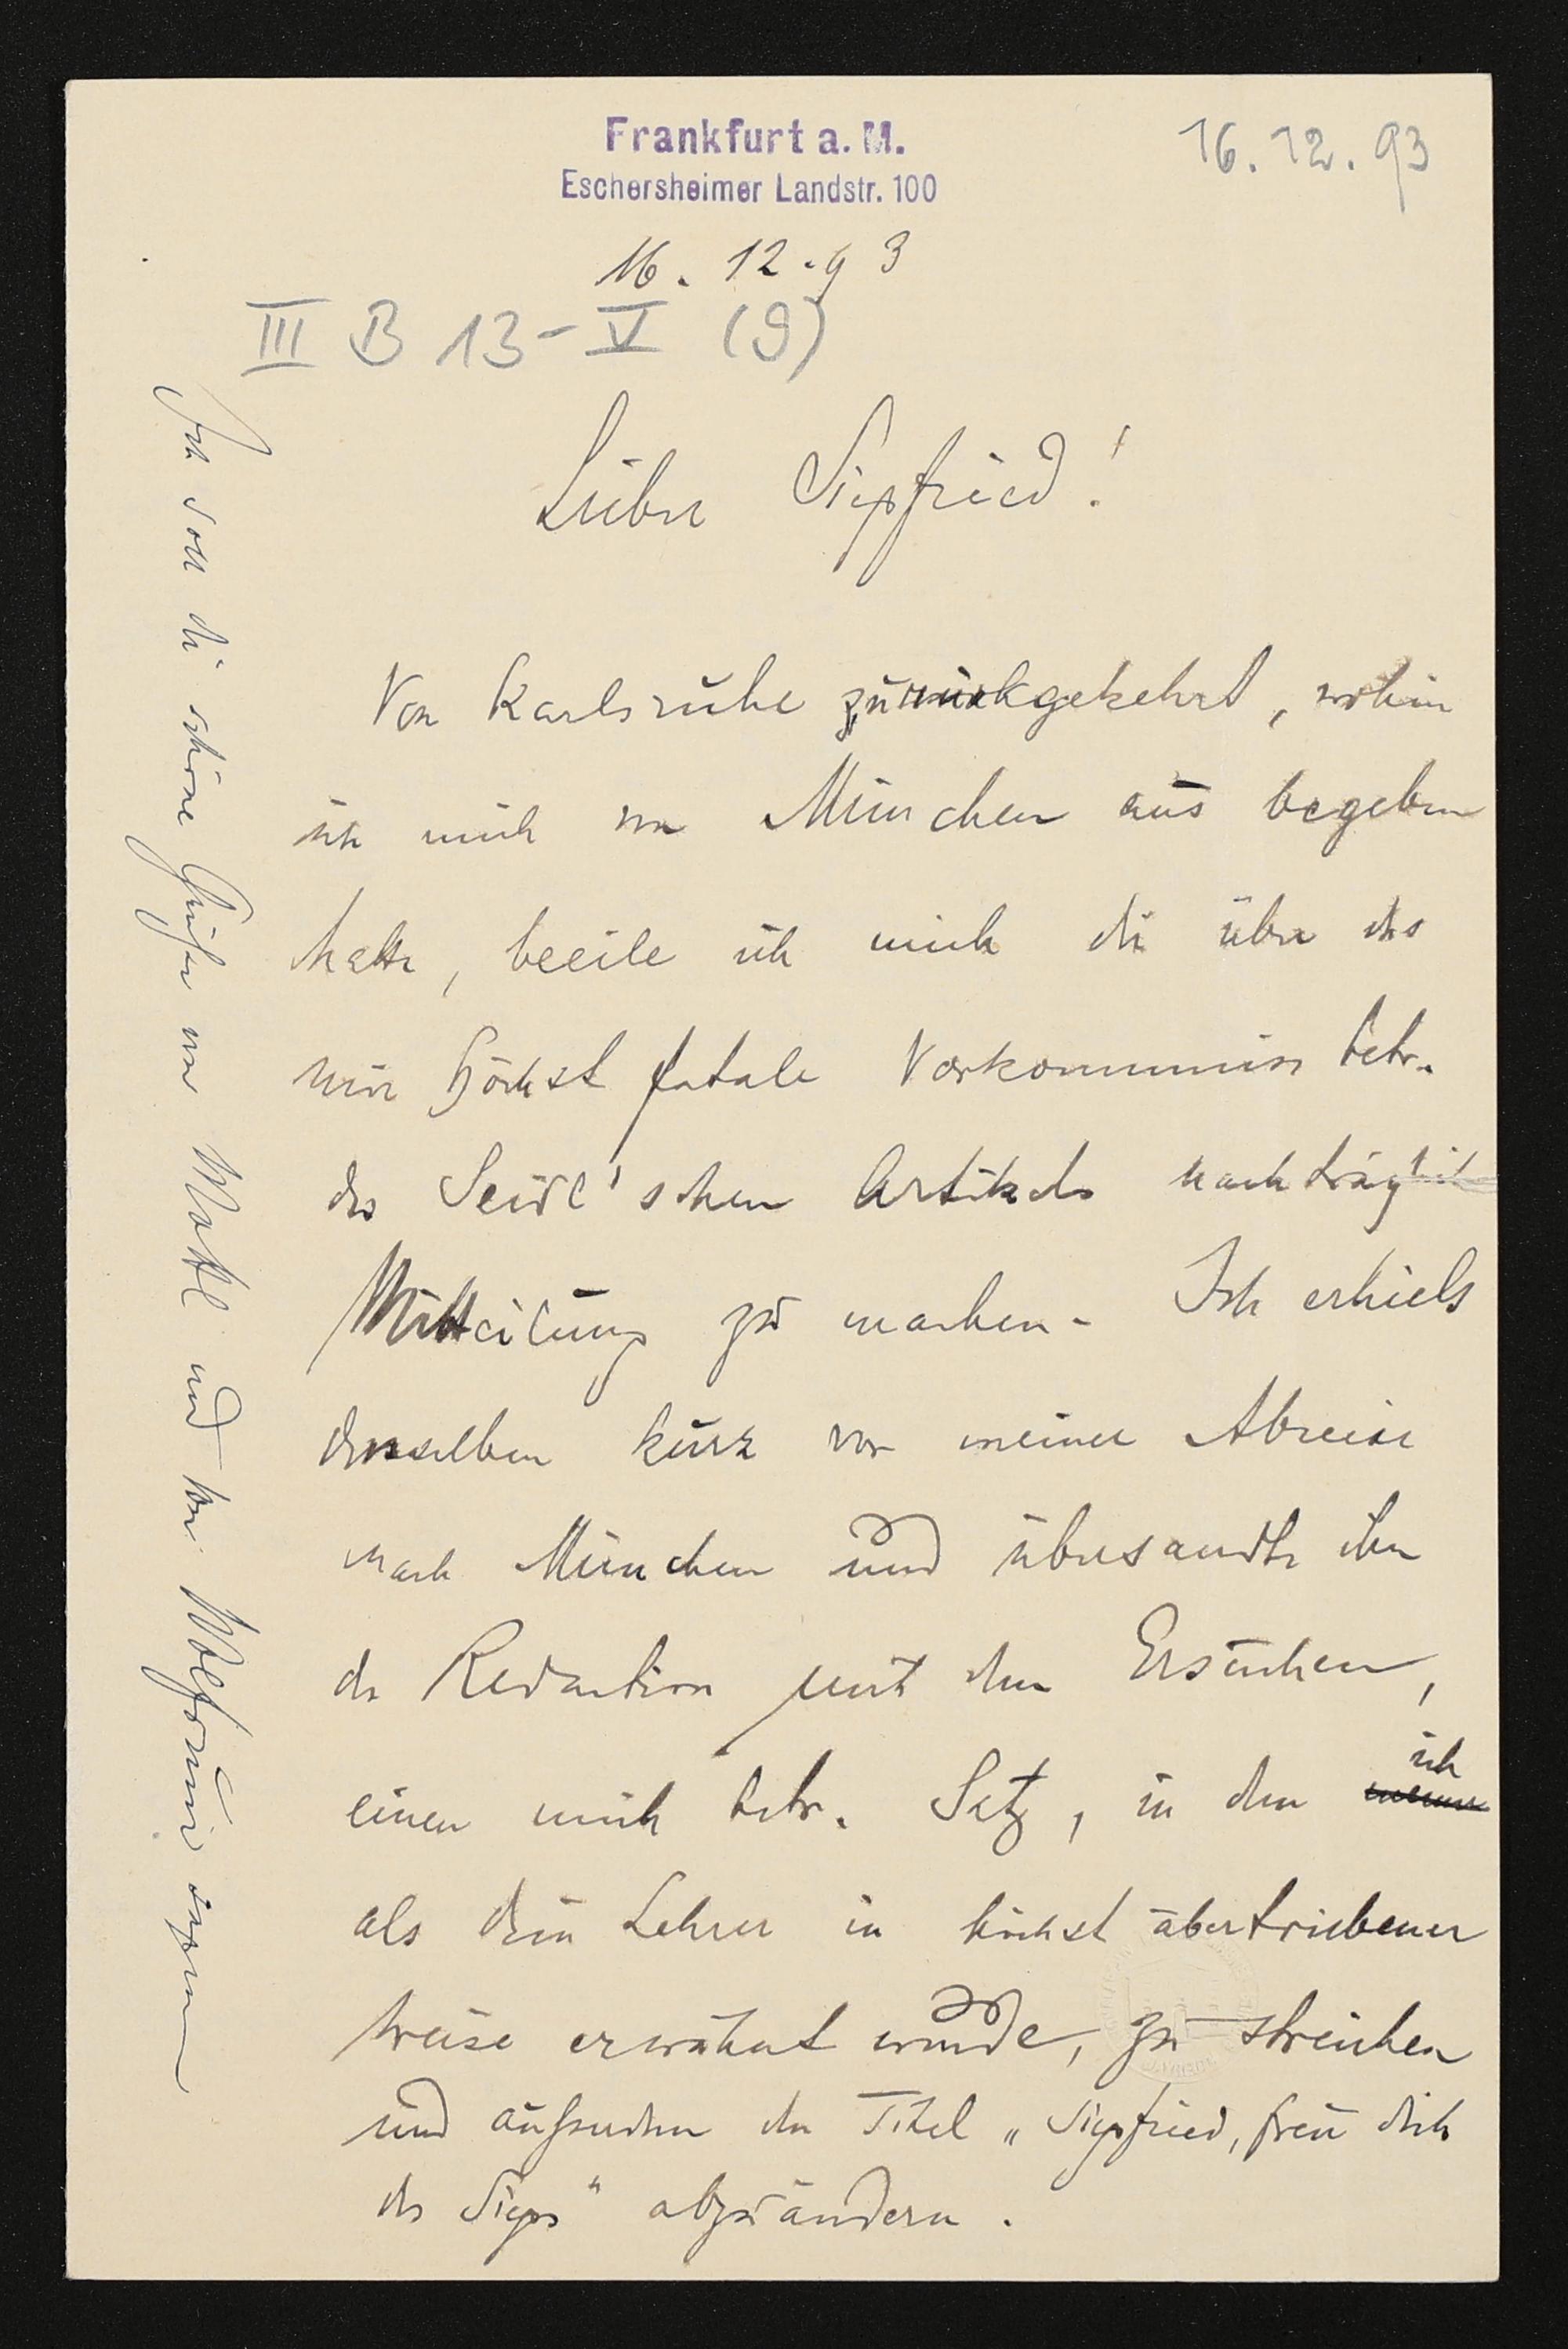 Frankfurt a. M.
Eschersheimer Landstr. 100
16. 12. 93
16. 12. 93
III B 13 - V (9)
Lieber Siegfried!
Von Karlsruhe zurückgekehrt, wohin
ich mich von München aus begeben
hatte, beeile ich mich dir über das
mir höchst fatale Vorkommnis betr.
des Seidl'schen Artikels nachträglich
Mitteilung zu machen. Ich erhielt
denselben kurz vor meiner Abreise
nach München und übersandte ihn
der Redaction mit dem Ersuchen,
einen mich betr. Satz, in dem ich
als dein Lehrer in höchst übertriebener
Weise erwähnt wurde, zu streichen
und ausserdem den Titel „Siegfried, freu dich
des Siegs" abzuändern.
Ich soll dir schöne Grüße von Mottl und von Wolfrum sagen